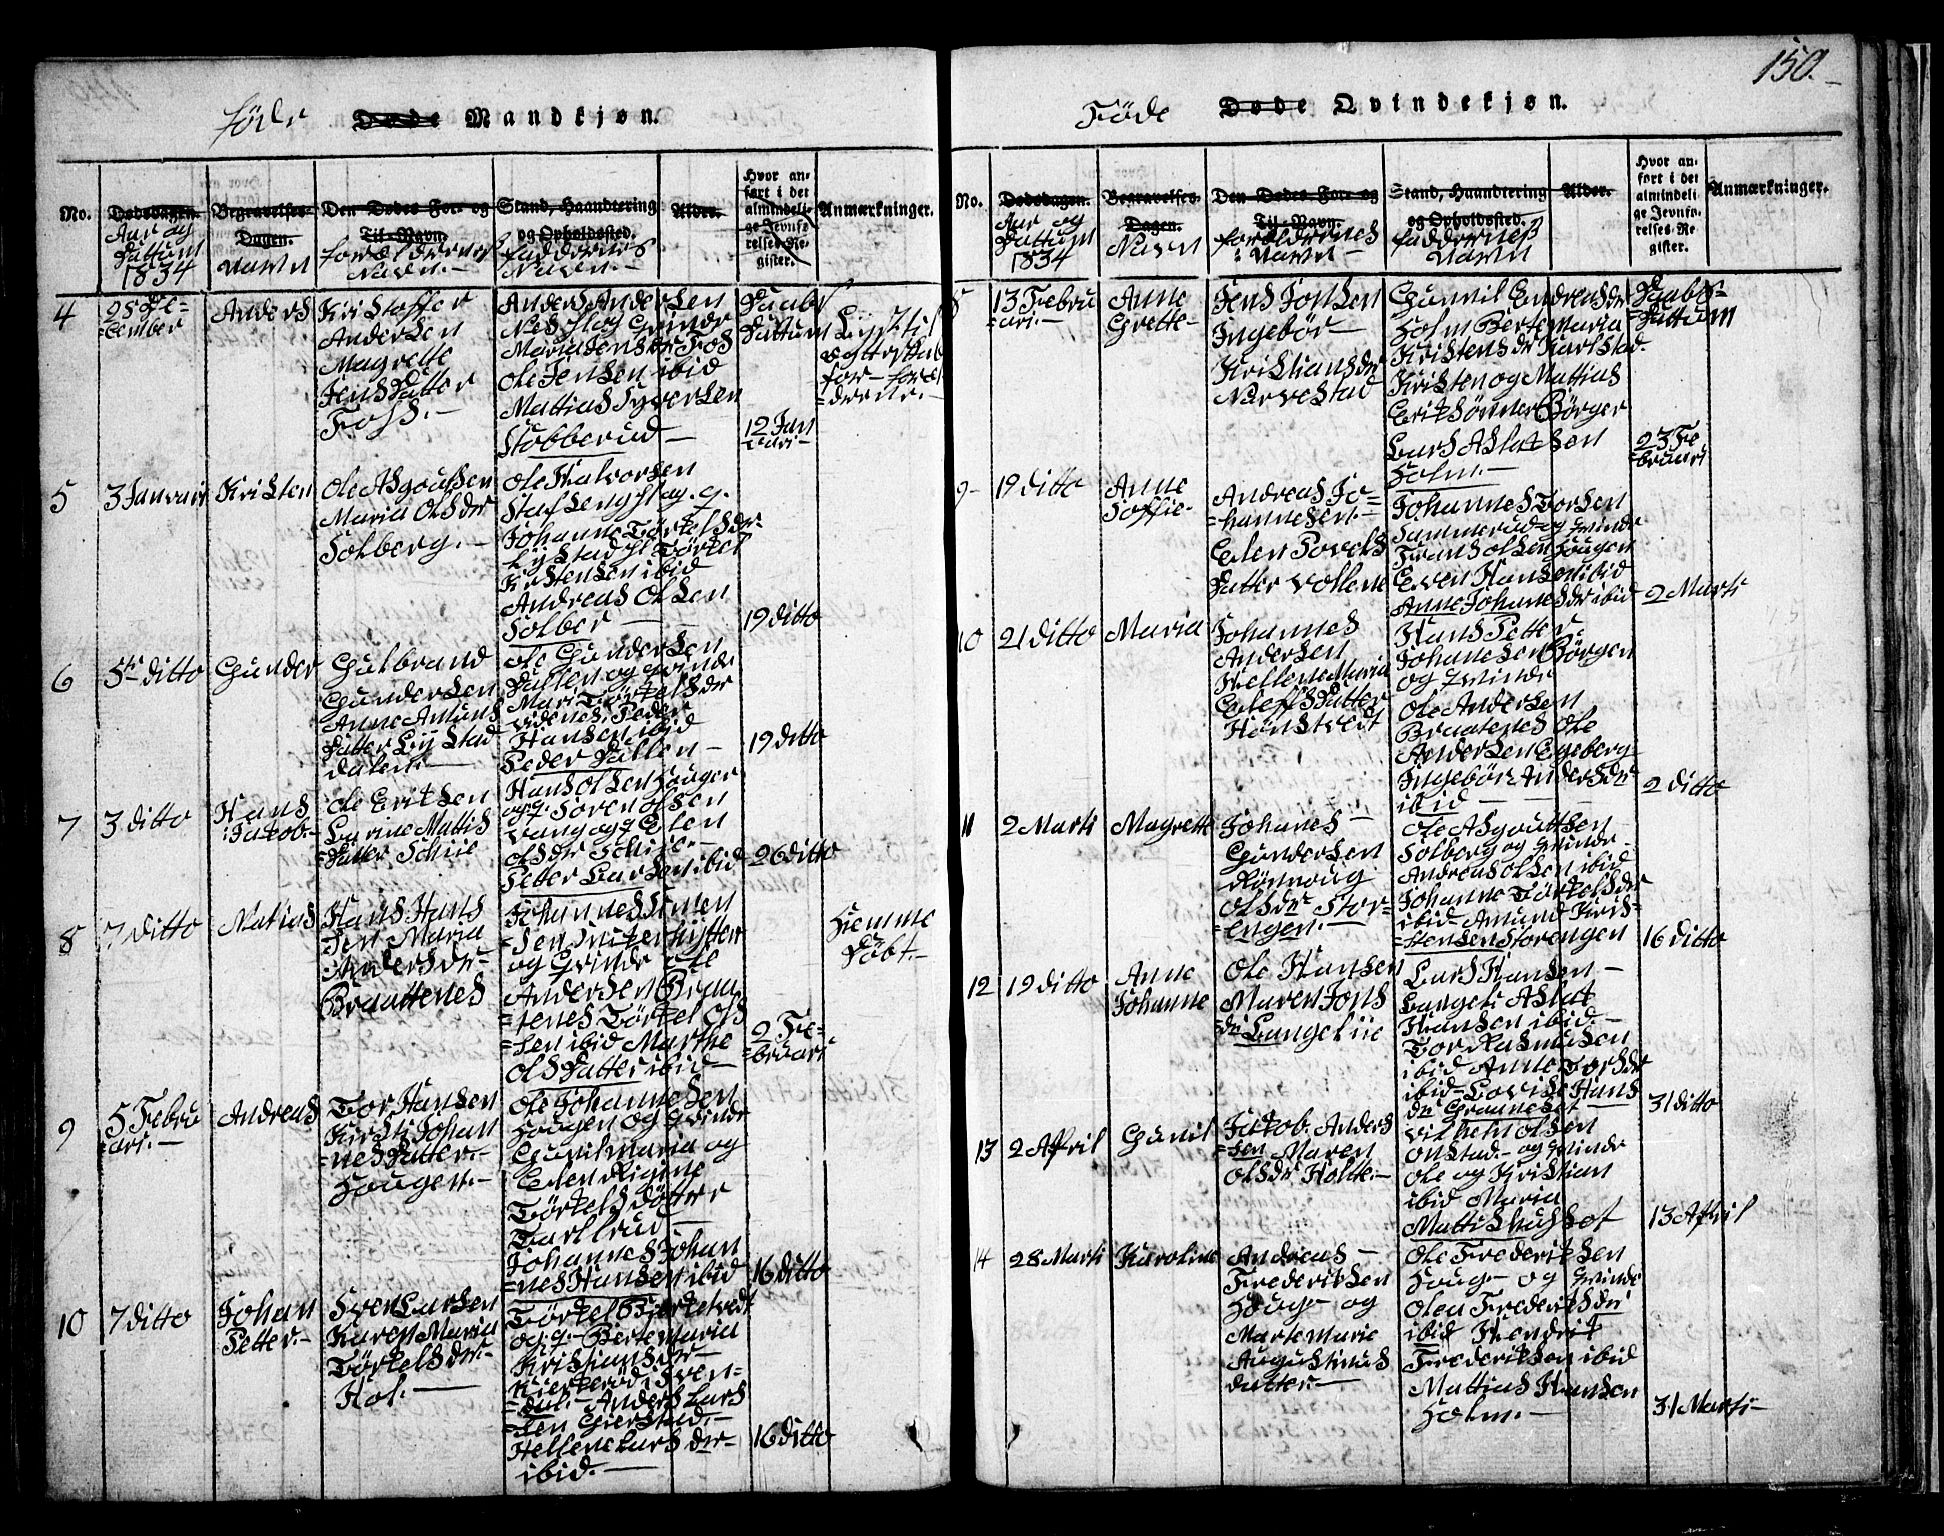 Føde Døde Mandkjøn.
No.
Dødsdagen. Aar og Dattum 1834
Begravelses-Dagen. Navn
Den Dødes For- og Til-Navn. forældrenes Navn.
Stand, Haandtering og Opholdssted. faddernes Navn.
Alder.
Hvor anført i det almindelige Jevnførelses-Register.
Anmærkninger.
4
25 De-
=cember
Anders
Kristoffer
Andersen
Magrette
Jens Datter
Foss.
Anders Andersen
Maria Jensdr Fos
Ole Jensen ibid
Mattias Syversen
Stobberud
Daabs
Dattum
12 Jan
uari
for foræl
=drerne.
5
3 Januari
Kristen
Ole Asgoutsen
Maria Olsdr
Solberg.
Ole Halvorsen
Johanne Törkelsdr
Kristensen ibid
Andreas Olsen
Solber
19 ditto
6
5te ditto
Gunder
Gulbrand
Gundersen
Anne Amunds
Datter Lystad
dalen.
Ole Gundersen
Dallen og qvinde
Mari Törkelsdr
Videnes, Peder
Hansen ibid
Peder Dallen
19 ditto
7
3 ditto
Hans
Jakob
Ole Eriksen
Karine Mattis
=Datter Schiie
Hans Olsen Houger
og q. Soren Olsen
Vang og q Elen
Olsdr Schiie.
Petter Larsen ibid
26 ditto
8
7 ditto
Matias
Hans Hans
sen Maria
Andersdr
Braattenes
Johannes Simen
og Qvinde Ole
Andersen Braa
=tenes Törkel Ols
=sen ibid Marthe
Ols Datter ibid
2 Fe=
=bruari
Hiemme
Döbt.
9
5 Febru
=ari.
Andreas
Tor Hansen
Kirsti Johan
=nes Datter.
Hougen.
Ole Johannesen
Hougen og Qvinde
Gunilmaria og
Elen Rigine
Törkels døttre
Johannes Johan
=nes Hansen ibid
16 ditto
10
7 ditto
Johan
Petter
Sven Larsen
Karen Maria
Törkelsdr.
Hol.
Törkel Bjerketvedt
og q. Berte Maria
Kristiansdr
Kierkerod, Sven
=dal. Anders Lars
=sen Gierstad.
Hellene Larsdr
ibid.
16 ditto
150.
Føde Døde Qvindekjøn.
No.
Dødsdagen. Aar og Dattum 1834
Begravelses-Dagen. Navn
Den Dødes For- og Til-Navn. forældrenes Navn
Stand, Haandtering og Opholdssted. faddernes Navn
Alder.
Hvor anført i det almindelige Jevnførelses-Register.
Anmærkninger.
8
13 Febru
=ari.
Anne
Grette
Jens Jonsen
Ingebör
Kristiansdr
Narvestad
Gunnil Endreasdr
Holm Berte Maria
Kristensdr Karlstad.
Kristen og Mattias
Eriksønner Börger
Lars Aslaksen
Holm.
Daabs
Dattum
23 Fe
=bruari
9
19 ditto
Anne
Soffie
Andreas Jo=
=hannesen.
Elen Povels
Datter Vollene
Johannes Torsen
Sammerud og Qvinde
Frans Olsen Hougen
Even Hansen ibid
Anne Johanesdr ibid
2 Marti
10
21 ditto
Maria
Johannes
Andersen
Hellene Maria
Eleffs Datter
Hönstvedt
Hans Petter
Johanesen Börgen
og Qvinde
Ole Andersen
Braatenes Ole
Andersen Egeberg
Ingebör Andersdr
ibid
2 ditto
11
2 Marti
Magrette
Johanes
Gundersen
Rönnoug
Olsdr Stor=
=engen.
Ole Asgoutsen
Solberg og Qvinde
Andreas Olsen ibid
Johanne Törkelsdr
ibid Amund Kris=
=tensen Storengen
16 ditto
12
19 ditto
Anne
Johanne
Ole Hansen
Maren Jons
dr Langeliie
Lars Hansen
Langeli Aslak
Hansen ibid.
Tor Rasmusen
ibid Anne Torsdr
ibid Lovise Hans
dr Graaneset
31 ditto
13
2 April
Gunil
Jakob Anders
=sen Maren
Olsdr Holte.
Vilhelm Olsen
Onstad og Qvinde
Ole og Kristian
ibid Maria
13 April
14
28 Marti
Karoline
Andreas
Frederiksen
Houg og
Marte Marie
Augustinus
datter.
Ole Frederiksen
Houg og Qvinde
Olea Frederiksdr
ibid Hendrik
Frederiksen ibid
Mattias Hansen
Holm.
31 Marti